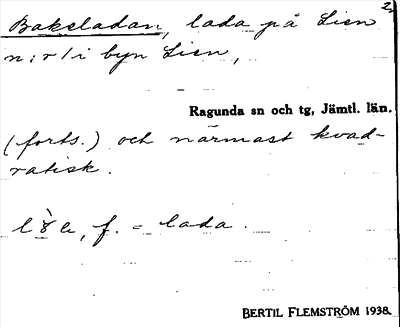 Baksladan, lada på Lien 2.
n:r 1 i byn Lien,
Ragunda sn och tg, Jämtl. län.
(forts.) och närmast kvad-
ratisk.
f. = lada.
BERTIL FLEMSTRÖM 1938.